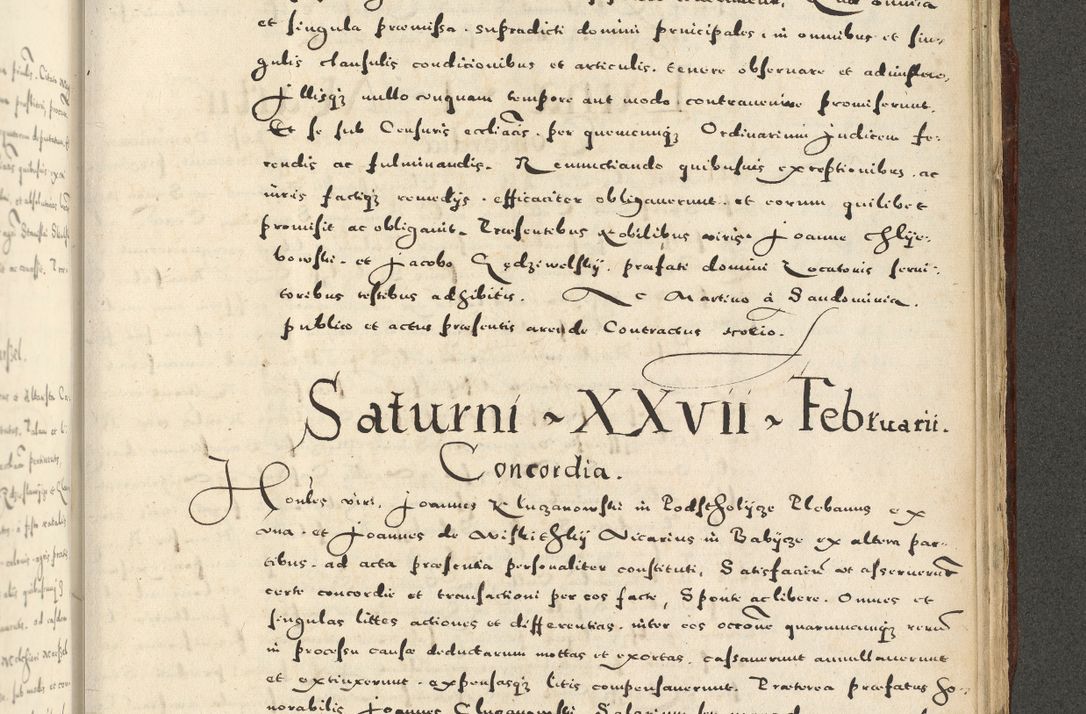 et singula præmissa. supradicti domini principales, in omnibus et sin-
gulis clausulis condicionibus et articulis. tenere observare et adimplere,
Jllisqz nullo vnquam tempore aut modo. contravenire promiserunt.
Et se sub Censuris eccliacis. per quemcunqz Ordinarium Judicem fe-
rendis ac fulminandis. Renunctiando quibusuis exceptionibus. ac
iuris factiqz remedijs. efficaciter obligaverunt. et eorum quilibet
promisit ac obligauit. Præsentibus Nobilibus viris. Joanne Chlije-
bowski. et Jacobo Gędziwelskij. præfati domini Locatoris servi-
toribus testibus adhibitis. Ac Martino à Sandomiria.
publico et actus præsentis arende Contractus notario.
Saturni ~ XXvii ~ Februarii.
Concordia.
Honbles viri, Joannes Kluczanowski in Podstholijcze Plebanus ex
vna. et Joannes de Wislithzij Vicarius in Babijcze ex altera par-
tibus. ad acta præsentia personaliter constituti, Satisfaciendo ut asseruerunt
certe concordie et transactioni per eos facte, Sponte ac libere. Omnes et
singulas littes actiones et differentias. inter eos occone quarumcunqz rerum
in processu causæ deductarum mottas et exortas. cassaverunt annullaverunt
et extinxerunt. expensasqz litis compensaverunt. Præterea præfatus ho-
norabilis Joannes